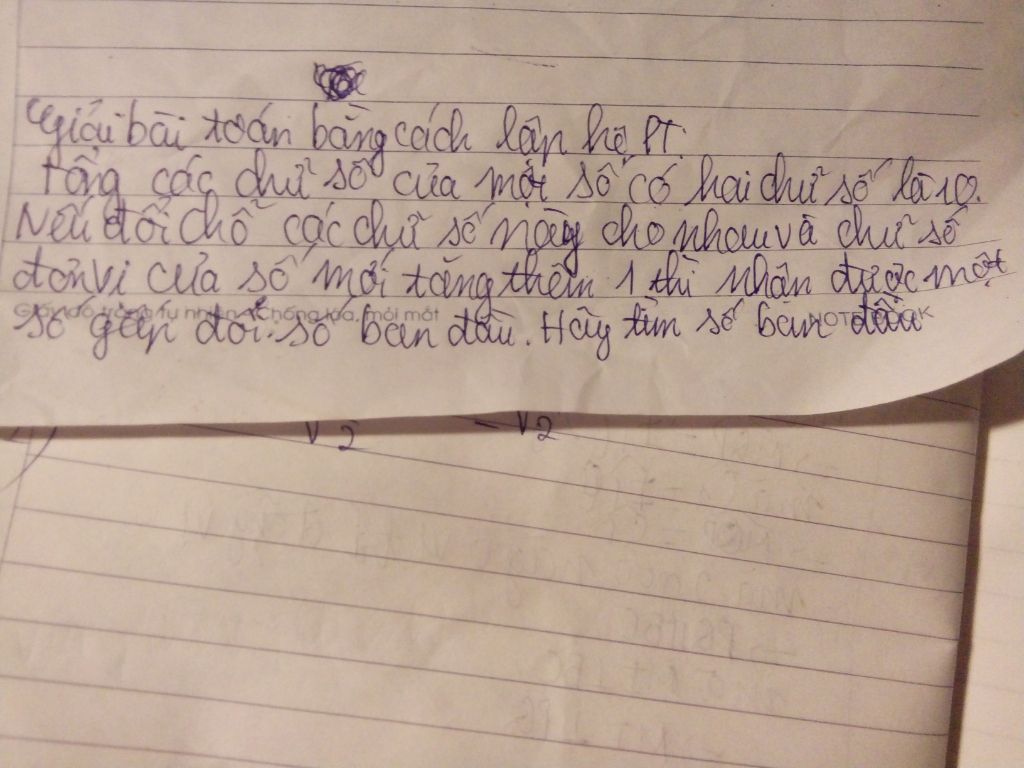 Giải bài toán bằng cách lập hệ PT:
Tổng các chữ số của một số có hai chữ số là 10.
Nếu đổi chỗ các chữ số này cho nhau và chữ số
đơn vị của số mới tăng thêm 1 thì nhận được một
số gấp đôi số ban đầu. Hãy tìm số ban đầu
Giấy kẻ trắng tự nhiên - Chống lóa, mỏi mắt
NOTEBOOK
√2 - √2